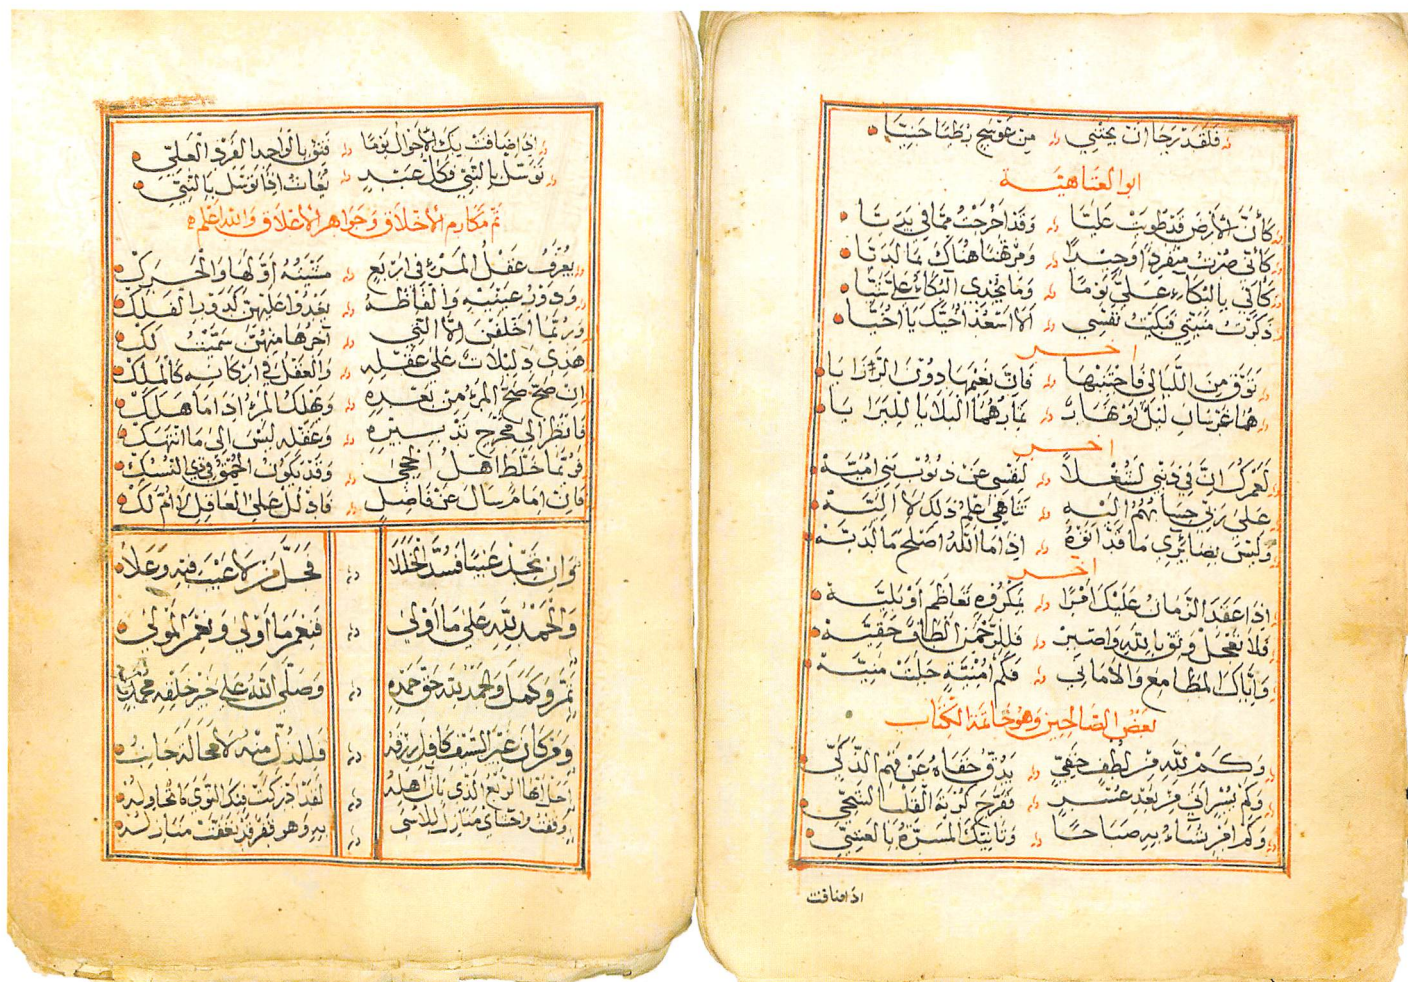 فلقد رجا ان يجتني من عوسج رطبا جنيا
ابو العتاهية
كأن الارض قد طويت عليا وقد اخرجت مما في يديا
كأني صرت منفردا وحيدا ومرتهنا هناك بما لديا
كأني بالبكاء علي يوما وما يجدي البكاء علي شيا
ذكرت منيتي فبكيت نفسي الا اسعد اخيك يا اخيا
اخر
توق من الليالي فاجتنبها فان نعيمها دون الرزايا
هما غرسان ليل او نهار ثمارهما البلايا للبرايا
اخر
لعمرك ان في ذنبي لشغلا لنفسي عن ذنوب بني امية
على ربي حسابهم اليه تناهى علم ذلك لا اليه
وليس بضائري ما قد اتوه اذا ما الله اصلح ما لديه
اخر
اذا عقد الزمان عليك امرا بمكروه تعاظم او بلية
فلا تعجل وثق بالله واصبر فللرحمن الطاف خفية
واياك المطامع والاماني فكم امنية جلبت منية
لبعض الصالحين وهو خاتمة الكتاب
وكم لله من لطف خفي يدق خفاه عن فهم الذكي
وكم يسر اتى من بعد عسر وفرج كربة القلب الشجي
وكم امر تساء به صباحا وتأتيك المسرة بالعشي
اذا ضاقت
اذا ضاقت بك الاحوال يوما فثق بالواحد الفرد العلي
توسل بالنبي فكل عبد يغاث اذا توسل بالنبي
تم مكارم الاخلاق وجواهر الاعلاق والله اعلم
يعرف عقل المرء في اربع مشيته اولها والحرك
ودور عينيه والفاظه بعد وا عليهن يدور الفلك
وربما اخلفن الا التي آخرها منهن سميت لك
هذي دليلات على عقله والعقل في اركانه كالملك
ان صح صح المرء من بعده ويهلك المرء اذا ما هلك
فانظر الى مخرج تدبيره وعقله ليس الى ما انتهك
فربما خلط اهل الحجى وقد يكون الحمق في ذي النسك
فان امام سال عن فاضل فادلل على العاقل لا ام لك
وان تجد عيبا فسد الخللا فجل من لا عيب فيه وعلا
والحمد لله على ما اولى فنعم ما اولى ونعم المولى
تم وكمل والحمد لله حق حمده وصلى الله على خير خلقه محمد
ومن كان غير السيف كافل رزقه فللذل منه لا محالة جانب
اجل ايها الربع الذي بان اهله لقد ادركت فيك النوى ما تحاوله
وقفت واحشاي منازل للاسى به وهو قفر قد تعفت منازله